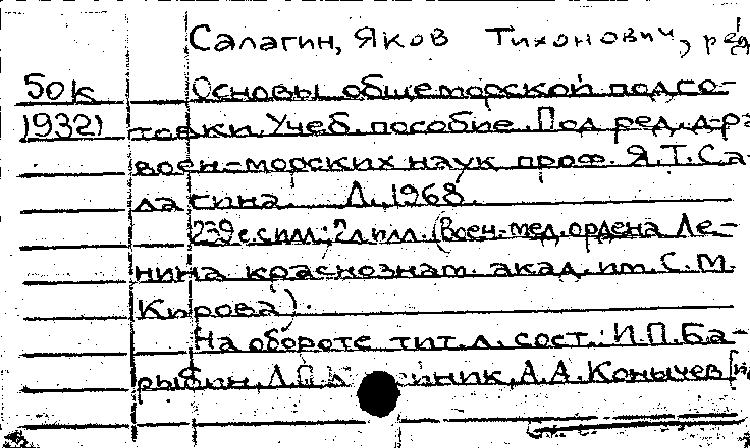 Салагин, Яков Тихонович, ред
50к Основы общеморской подго-
19321 товки. Учеб. пособие. Под ред. д-ра
воен-морских наук проф. Я.Т.Са-
лагина. Л., 1968.
239 с. с илл.; 2 л. илл. (Воен.-мед. ордена Ле-
нина краснознам. акад. им. С.М.
Кирова).
На обороте тит. л. сост.: И.П.Ба-
рыбин, А.А.Конычев